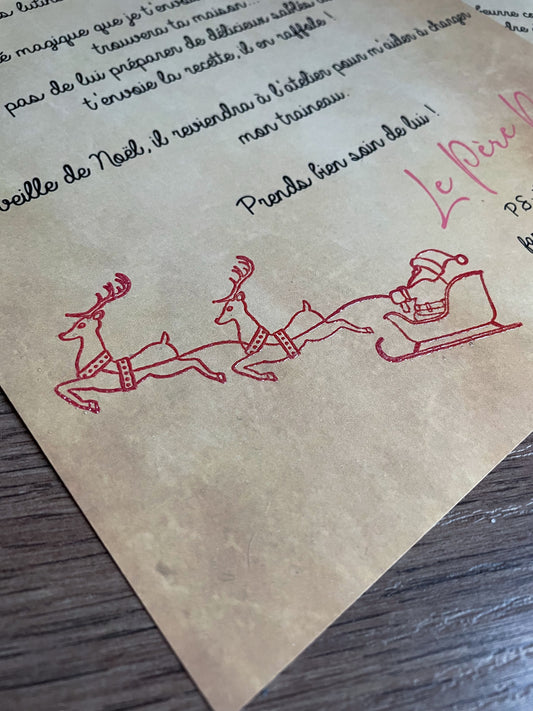 lutin
é magique que je t'envoie
trouvera ta maison...
pas de lui préparer de délicieux sablés
t'envoie la recette, il en raffole !
veille de Noël, il reviendra à l'atelier pour m'aider à charger
mon traineau.
Prends bien soin de lui !
Le Père
PS
beurre